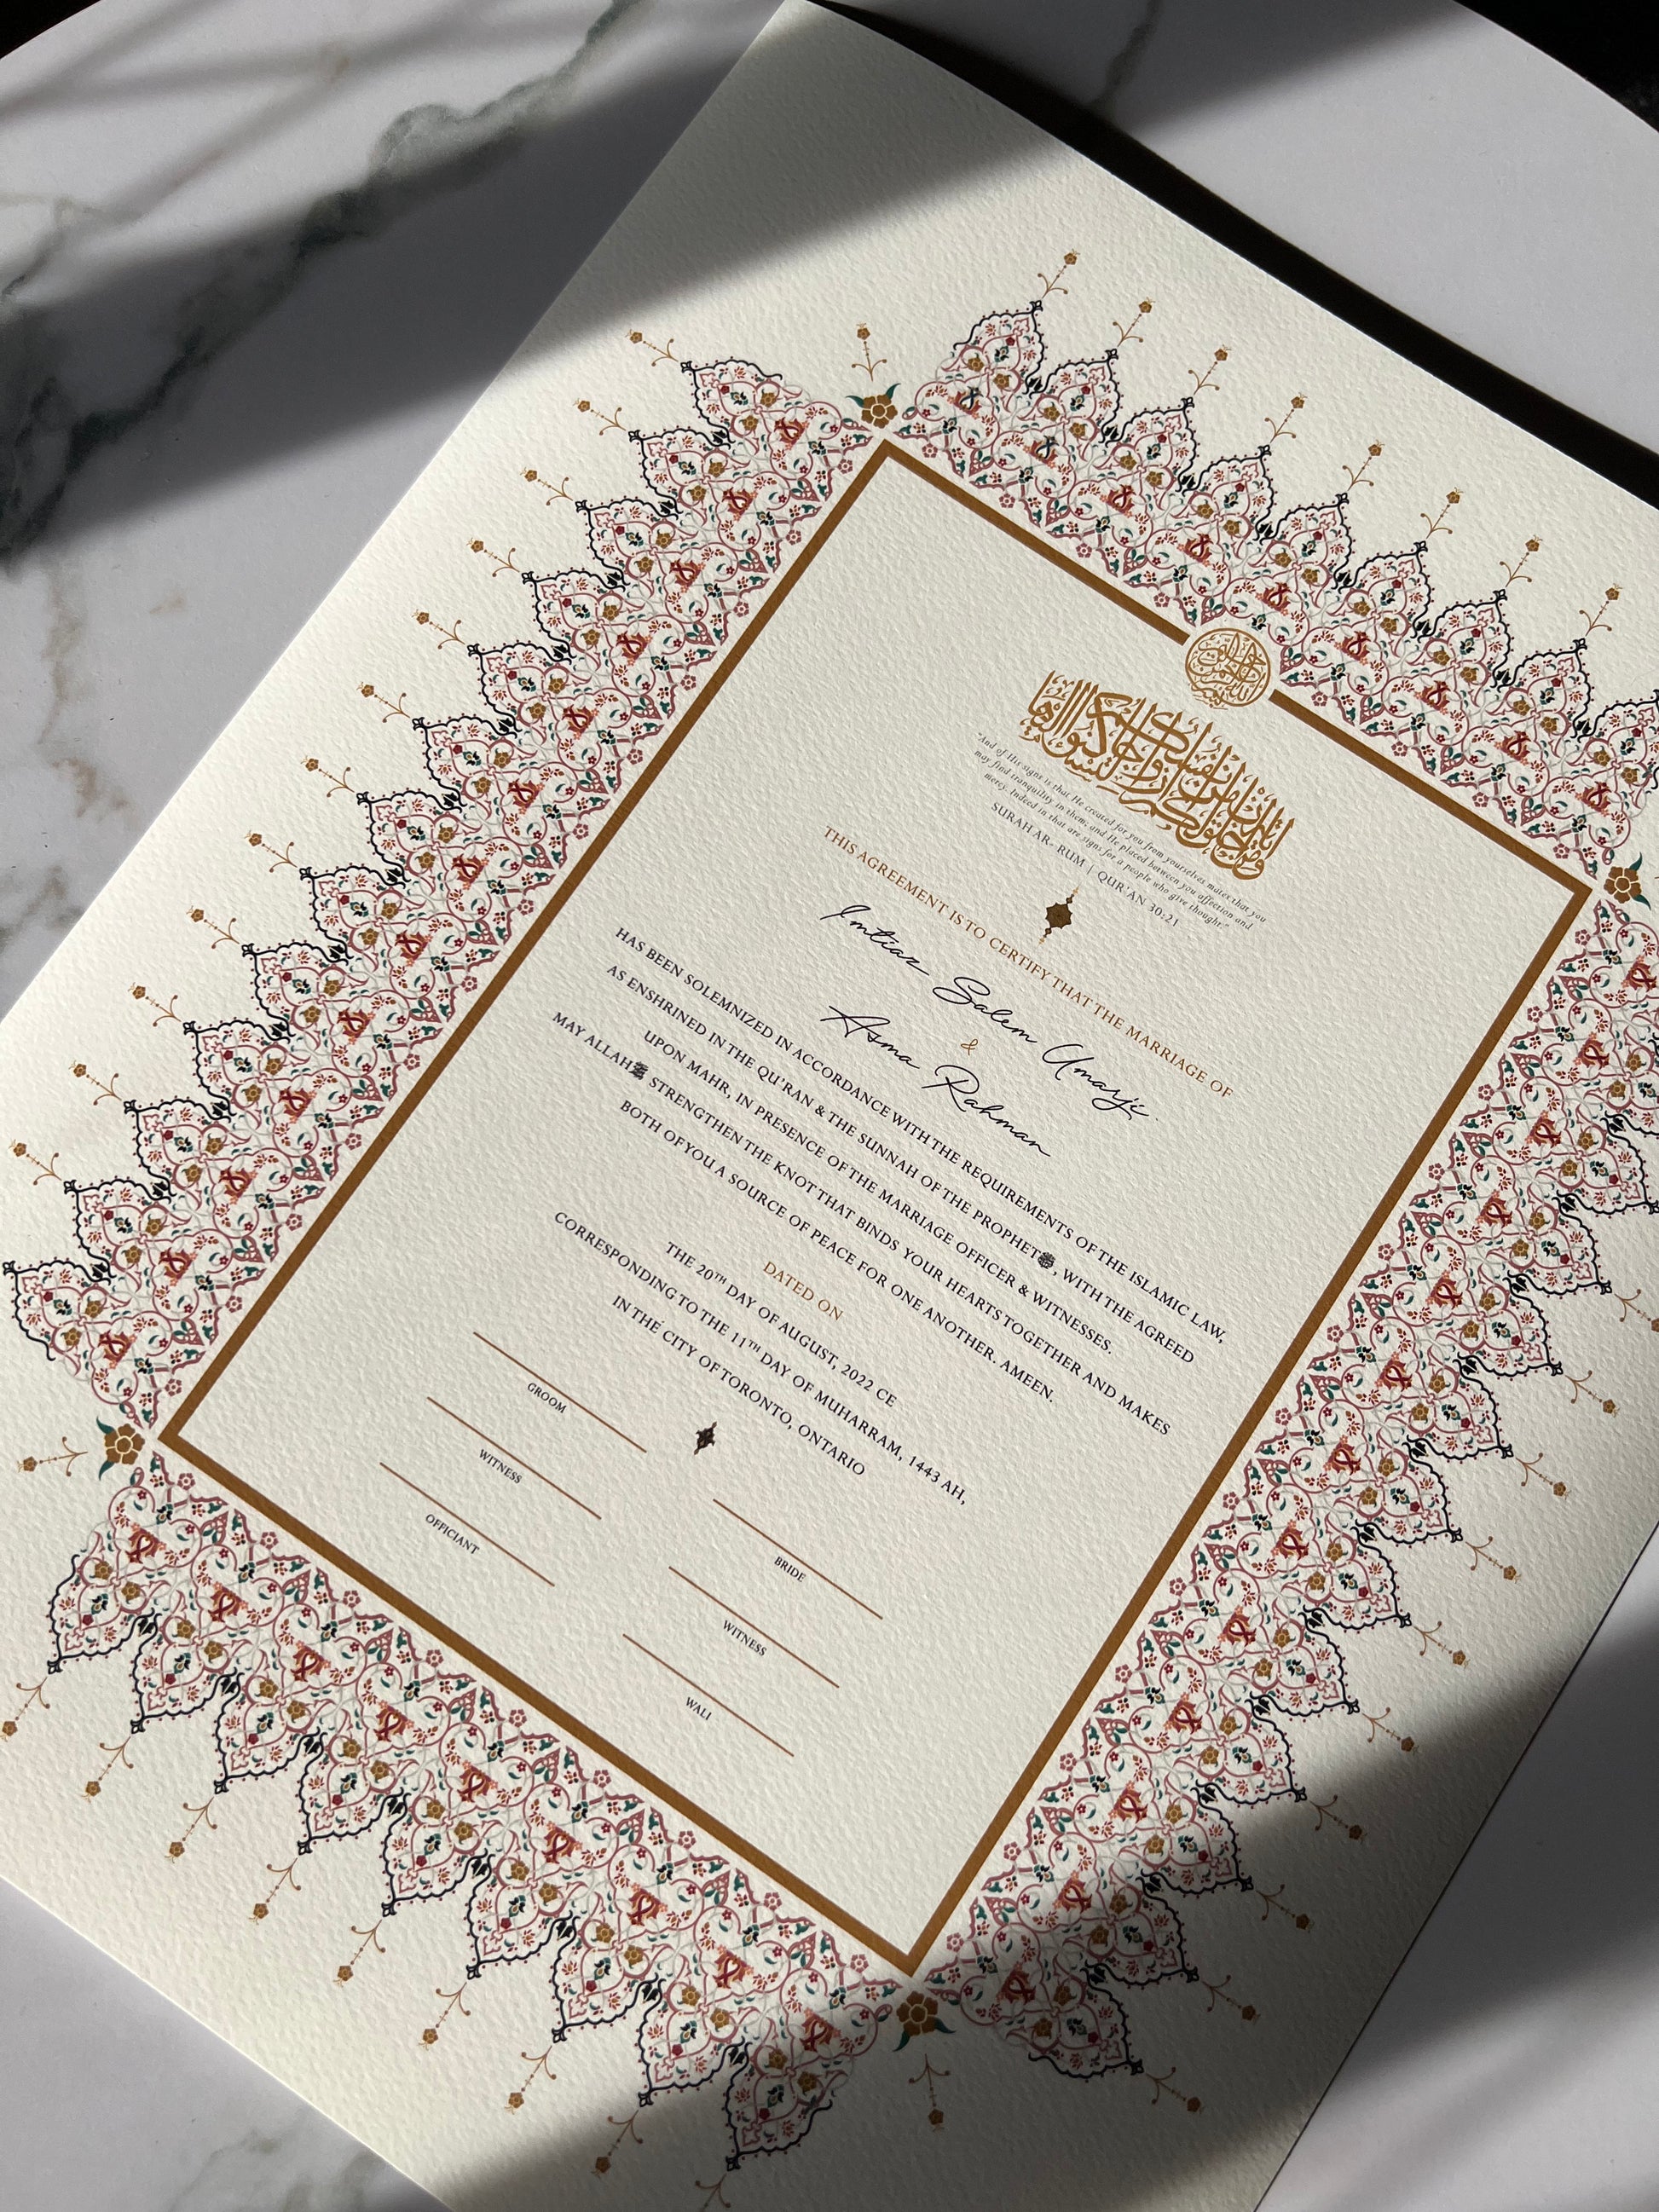 بسم الله الرحمن الرحيم
ومن آياته أن خلق لكم من أنفسكم أزواجا لتسكنوا إليها
"And of His signs is that He created for you from yourselves mates that you
may find tranquility in them; and He placed between you affection and
mercy. Indeed in that are signs for a people who give thought."
SURAH AR- RUM | QUR'AN 30:21
THIS AGREEMENT IS TO CERTIFY THAT THE MARRIAGE OF
Imtiaz Salem Umarji
&
Asma Rahman
HAS BEEN SOLEMNIZED IN ACCORDANCE WITH THE REQUIREMENTS OF THE ISLAMIC LAW,
AS ENSHRINED IN THE QU'RAN & THE SUNNAH OF THE PROPHET ﷺ, WITH THE AGREED
UPON MAHR, IN PRESENCE OF THE MARRIAGE OFFICER & WITNESSES.
MAY ALLAH STRENGTHEN THE KNOT THAT BINDS YOUR HEARTS TOGETHER AND MAKES
BOTH OF YOU A SOURCE OF PEACE FOR ONE ANOTHER. AMEEN.
DATED ON
THE 20TH DAY OF AUGUST, 2022 CE
CORRESPONDING TO THE 11TH DAY OF MUHARRAM, 1443 AH,
IN THE CITY OF TORONTO, ONTARIO
GROOM
BRIDE
WITNESS
WITNESS
OFFICIANT
WALI